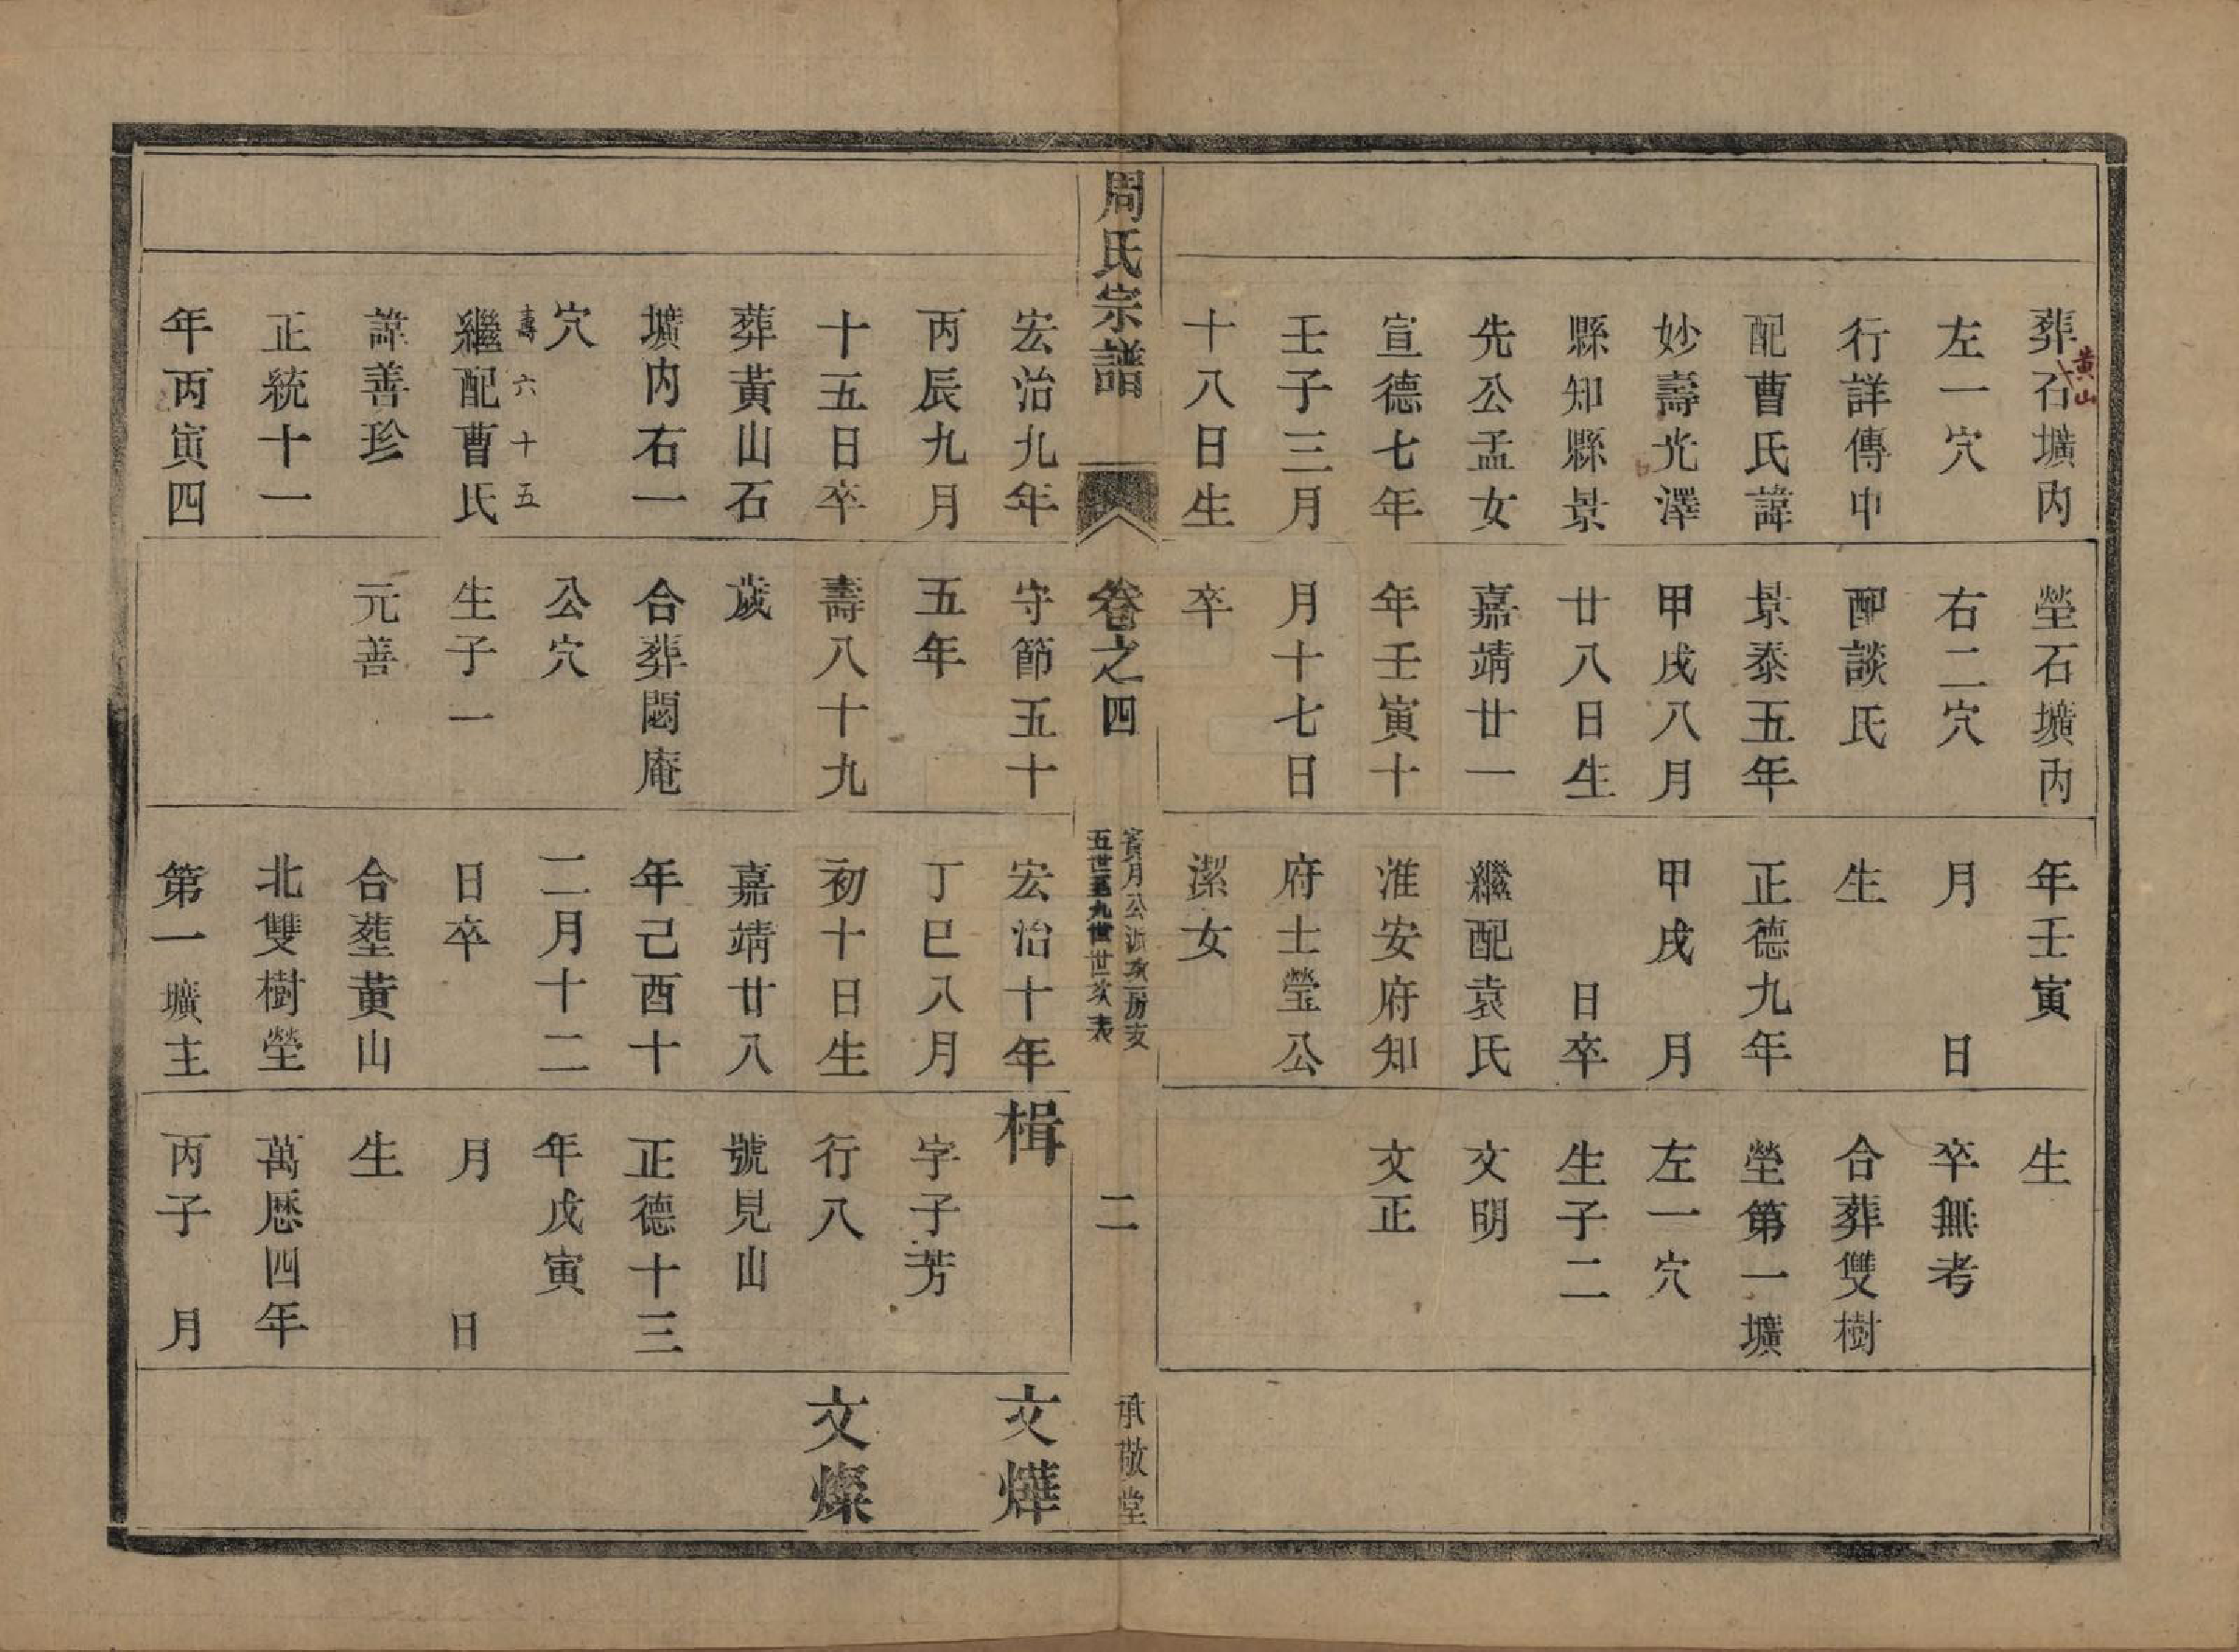 葬石壙内
黃山
左一穴
行詳傳中
配曹氏諱
妙壽光澤
縣知縣景
先公孟女
宣德七年
壬子三月
十八日生
塋石壙内
右二穴
配談氏
景泰五年
甲戌八月
廿八日生
嘉靖廿一
年壬寅十
月十七日
卒
年壬寅
月 日
生
正德九年
甲戌 月
日卒
繼配袁氏
淮安府知
府士瑩公
潔女
生
卒無考
合葬雙樹
塋第一壙
左一穴
生子二
文明
文正
周氏宗譜
卷之四
賓月公派次房支
五世至九世世次表
二
承敬堂
宏治九年
丙辰九月
十五日卒
葬黃山石
壙内右一
穴
壽六十五
繼配曹氏
諱善珍
正統十一
年丙寅四
守節五十
五年
壽八十九
歲
合葬悶庵
公穴
生子一
元善
宏治十年
丁巳八月
初十日生
嘉靖廿八
年己酉十
二月十二
日卒
合塟黃山
北雙樹塋
第一壙主
楫
字子芳
行八
號見山
正德十三
年戊寅
月 日
生
萬歷四年
丙子 月
文燁
文燦